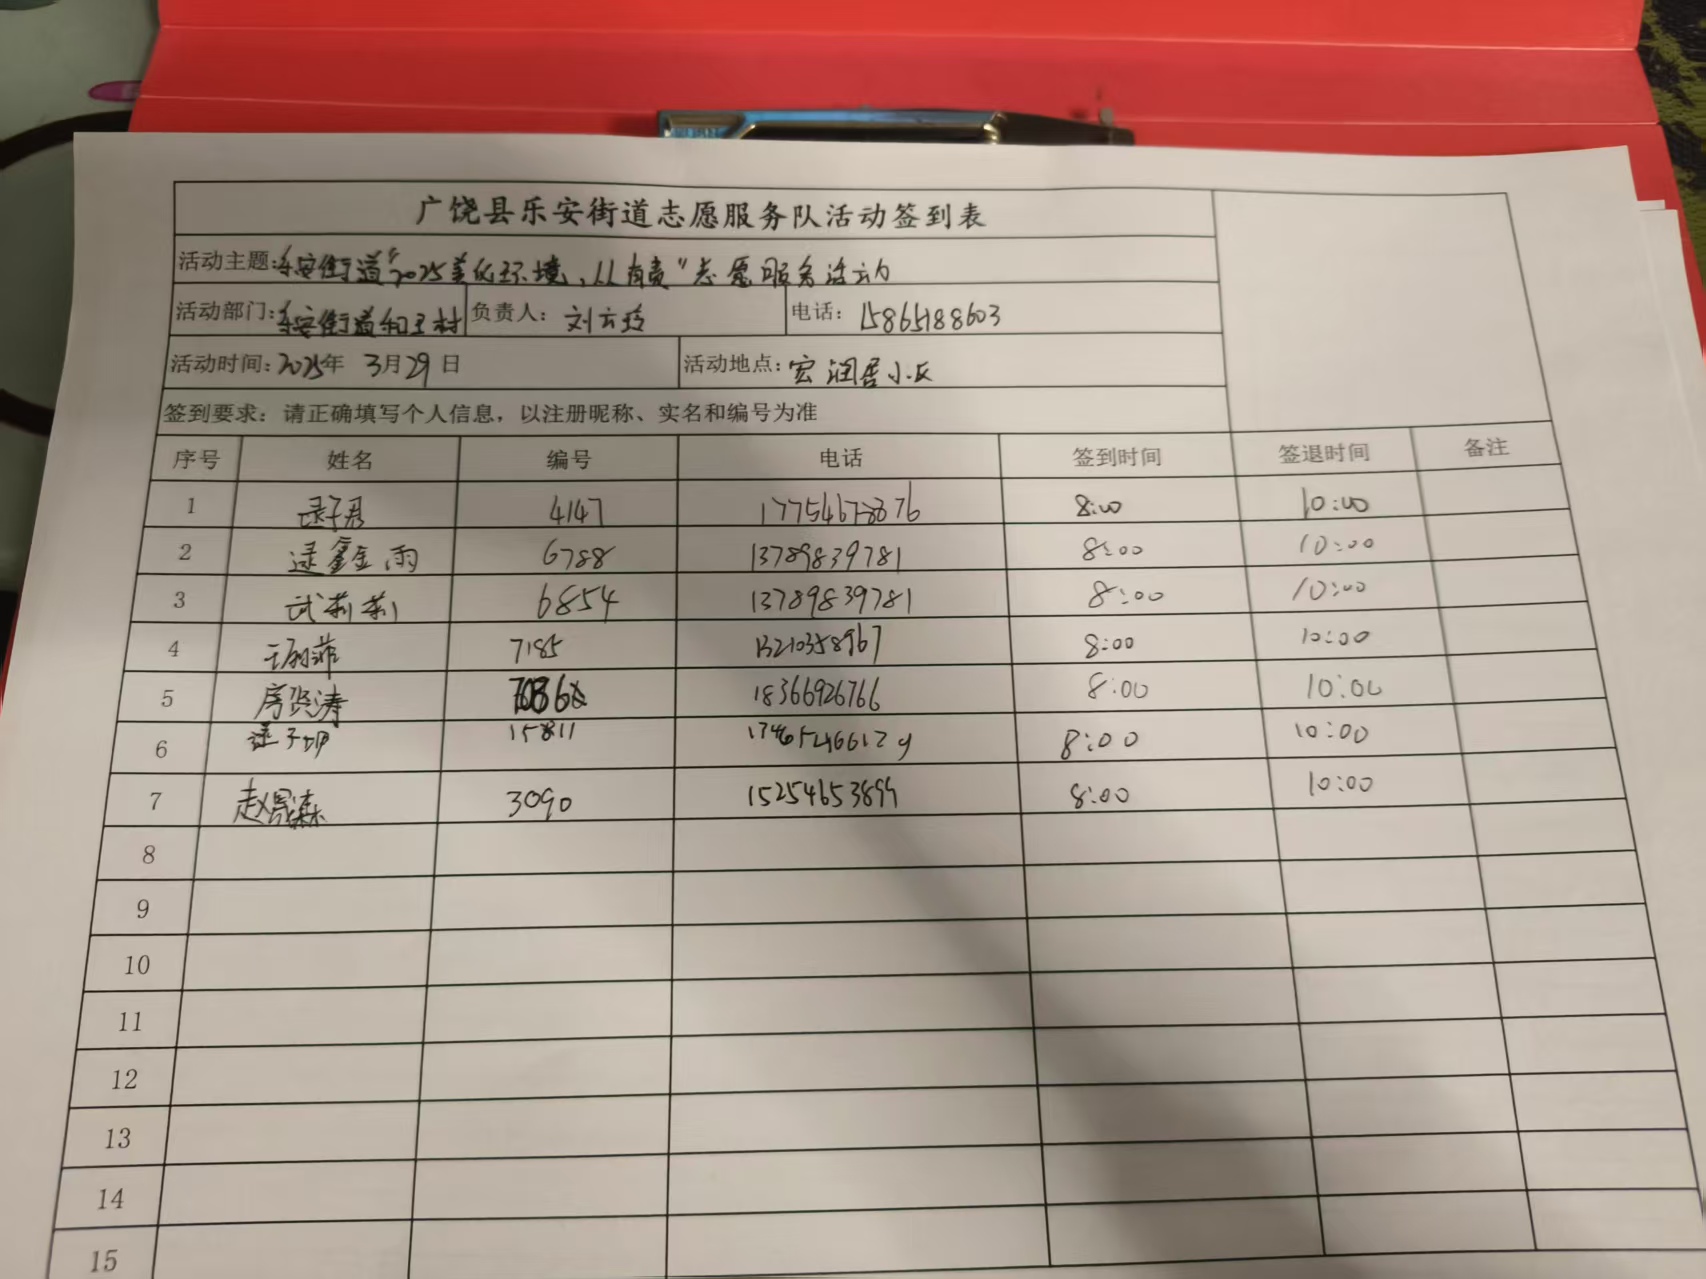 广饶县乐安街道志愿服务队活动签到表
活动主题:乐安街道"2025美化环境,人人有责"志愿服务活动
活动部门:乐安街道和王村 负责人: 刘云玲 电话: 15865188603
活动时间:2025年 3月29日 活动地点:宏润居小区
签到要求:请正确填写个人信息,以注册昵称、实名和编号为准
序号 姓名 编号 电话 签到时间 签退时间 备注
1 逯子君 4147 17754678876 8:00 10:00
2 逯鑫雨 6788 13789839781 8:00 10:00
3 武莉莉 6854 13789839781 8:00 10:00
4 7185 13210358967 8:00 10:00
5 房贤涛 18366926766 8:00 10:00
6 逯子 15811 8:00 10:00
7 赵 森 3090 15254653899 8:00 10:00
8
9
10
11
12
13
14
15